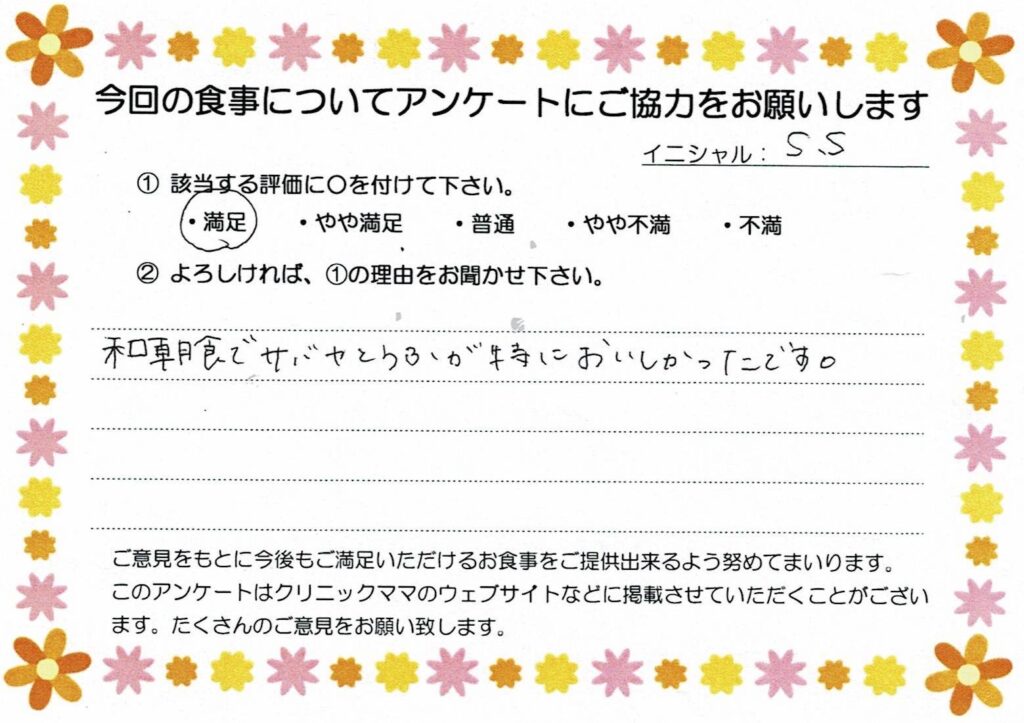 今回の食事についてアンケートにご協力をお願いします
イニシャル： S、S
① 該当する評価に〇を付けて下さい。
・満足 ・やや満足 ・普通 ・やや不満 ・不満
② よろしければ、①の理由をお聞かせ下さい。
和朝食でサバやとうふが特においしかったです。
ご意見をもとに今後もご満足いただけるお食事をご提供出来るよう努めてまいります。
このアンケートはクリニックママのウェブサイトなどに掲載させていただくことがござい
ます。たくさんのご意見をお願い致します。